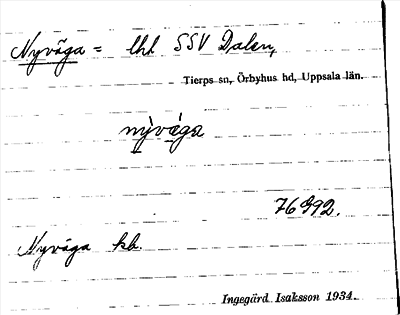 Nyväga = lht SSV Dalen,
Tierps sn, Örbyhus hd, Uppsala län.
nỳvǽga
76992.
Nyväga kb.
Ingegärd Isaksson 1934.